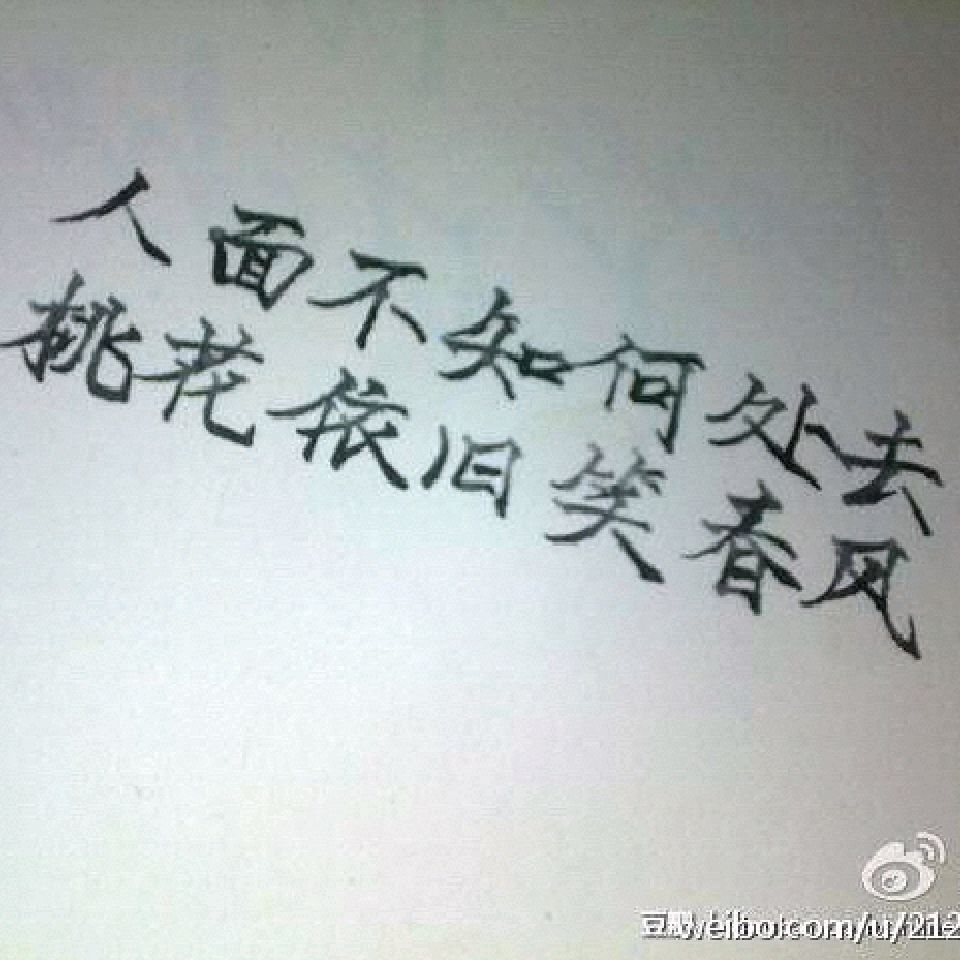 人面不知何处去
桃花依旧笑春风
weibo.com/u/212